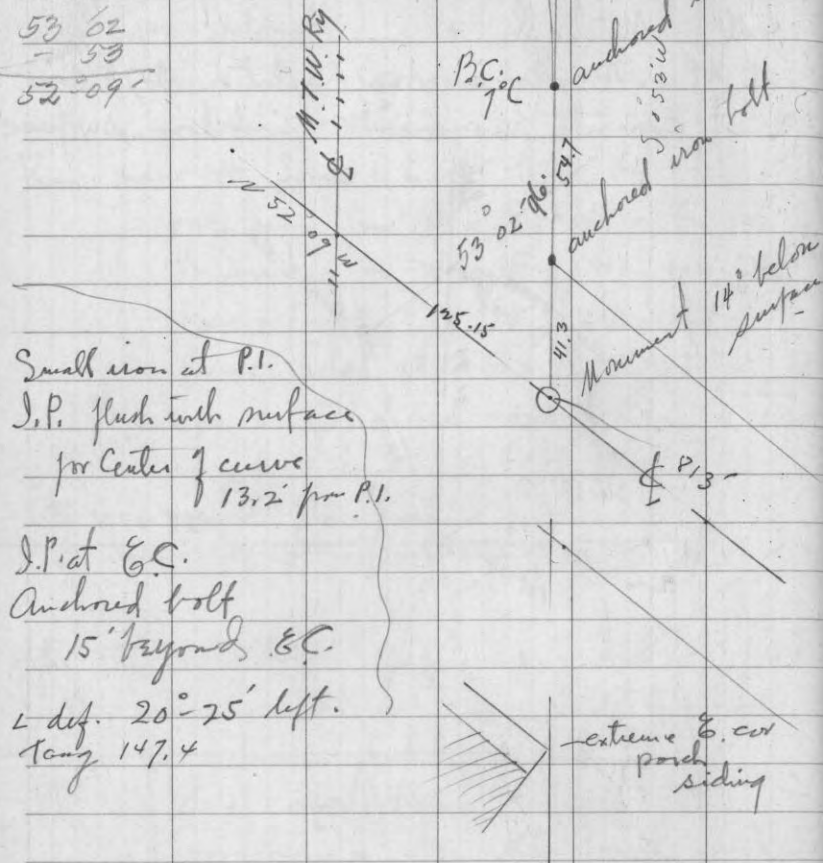 53° 02
- 53
52° 09'
M.T.W. Ry
B.C.
7°C
anchored
S 0° 53' W
54.7
53° 02' 06.
anchored iron bolt
N 52° 09' W
125.15
41.3
Monument 14" below
surface
Small iron at P.I.
I.P. flush with surface
for Center of curve
13.2' from P.I.
I.P. at E.C.
Anchored bolt
15' beyond E.C.
∠ def. 20°-25' left.
Tang 147.4
extreme E. cor
porch
siding